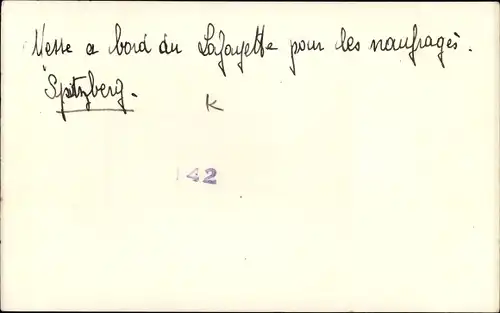 Messe a bord du Lafayette pour les naufragés.
Spitzberg.
K
142